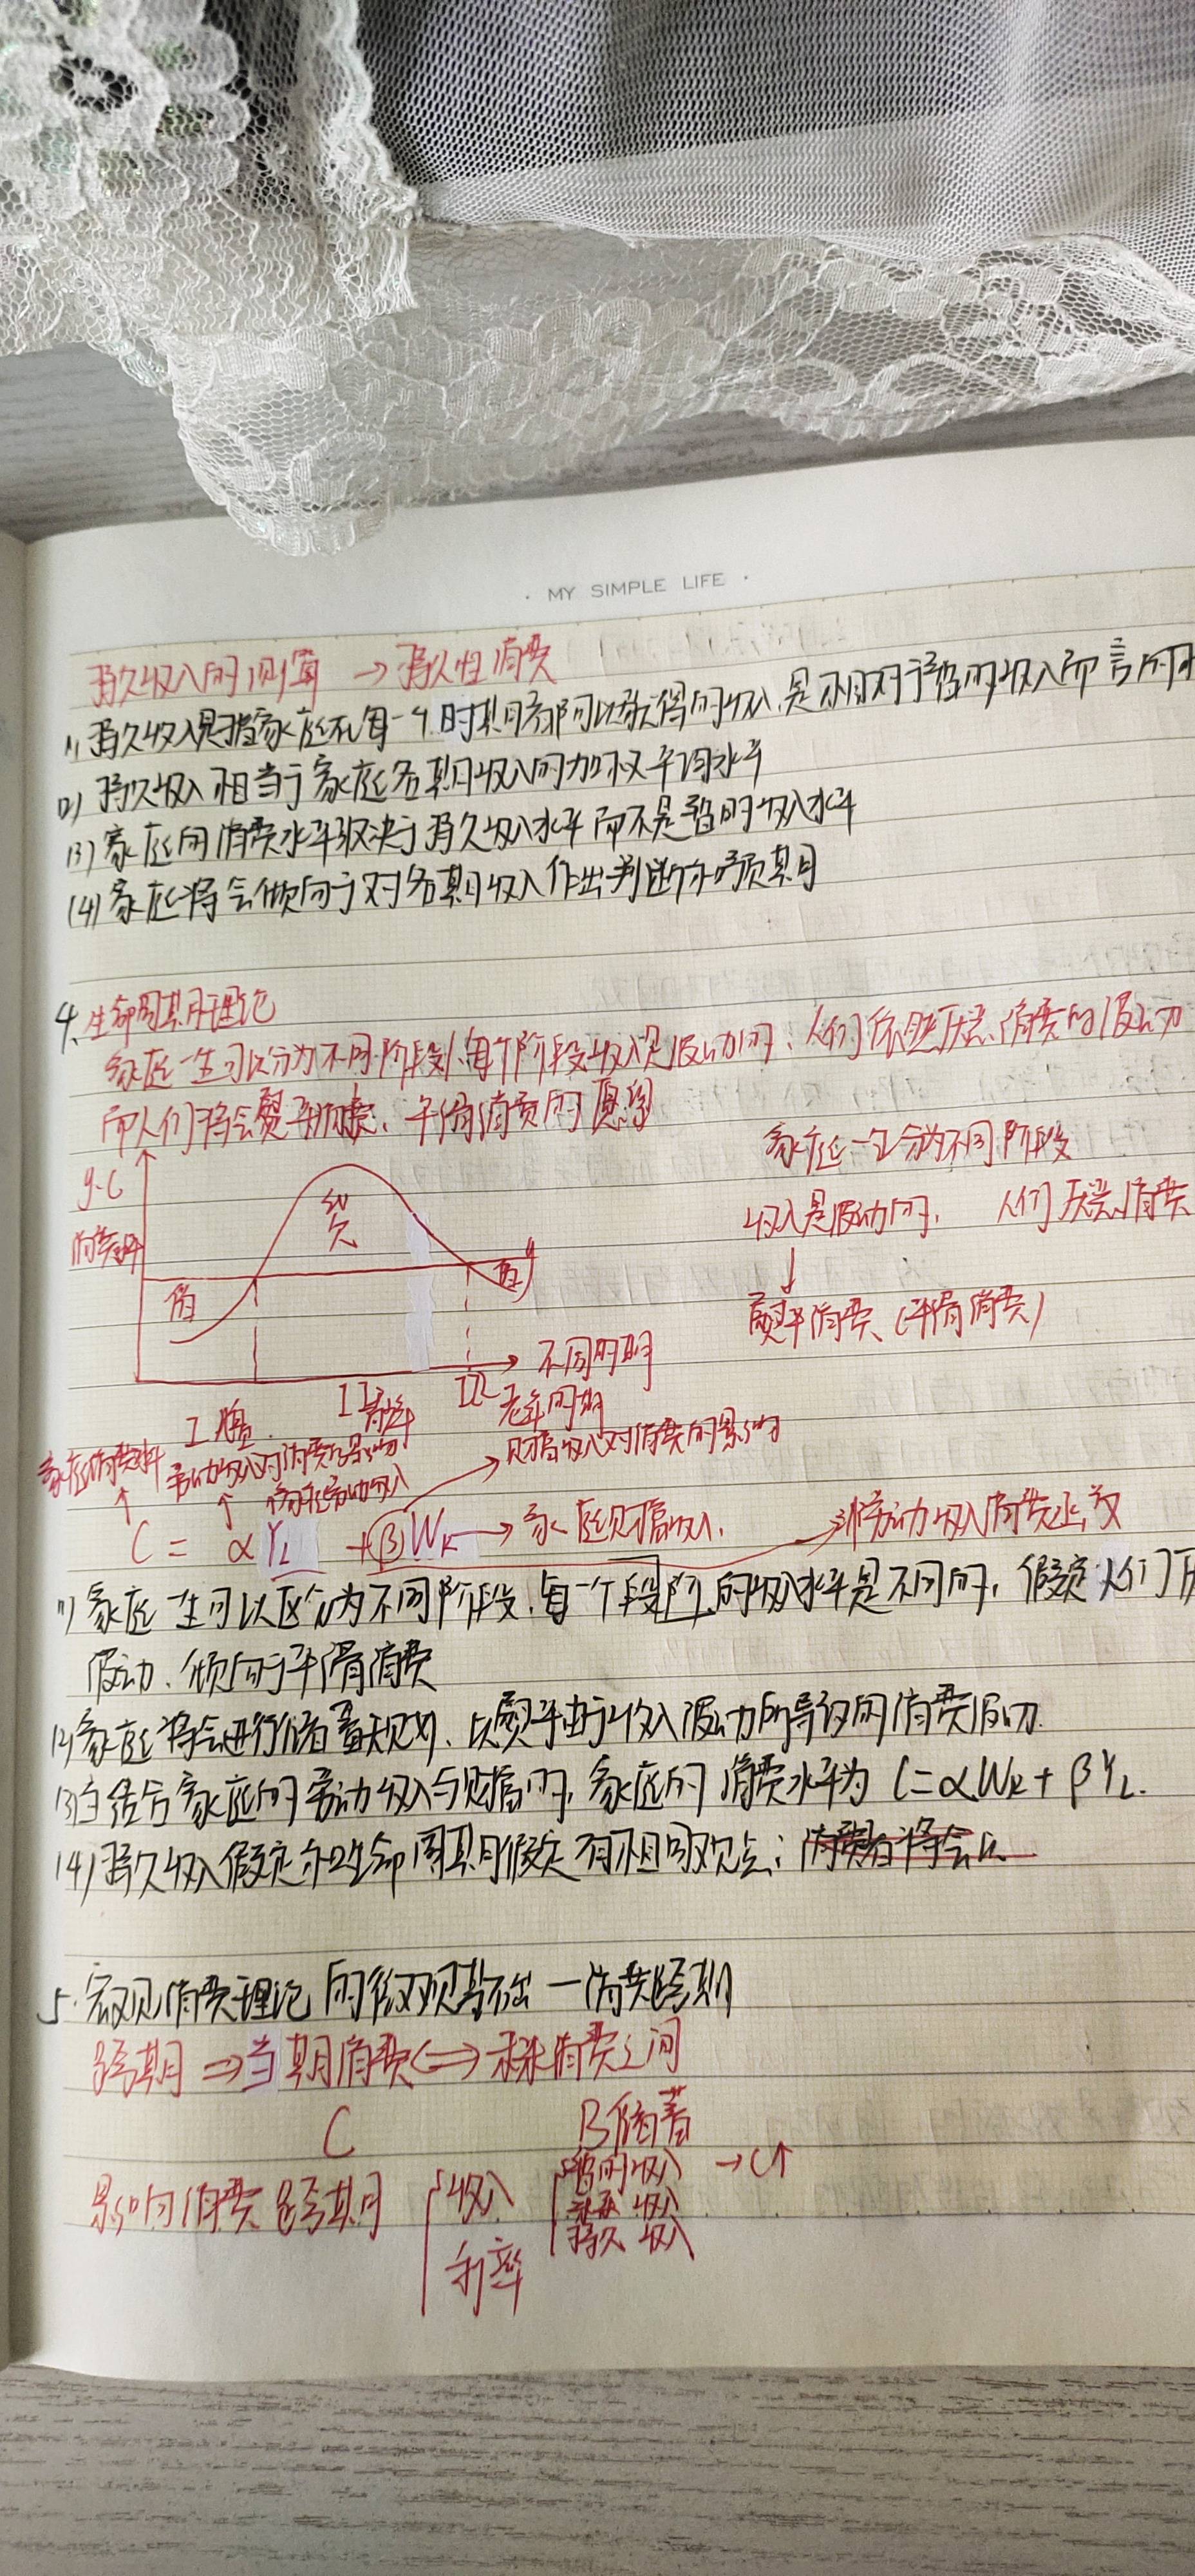 · MY SIMPLE LIFE ·
持久收入的测算 → 持久性消费
(1) 持久收入是指家庭在每一个时期都可以获得的收入,是相对于暂时收入而言的
(2) 持久收入相当于家庭各期收入的加权平均水平
(3) 家庭的消费水平取决于持久收入水平而不是暂时收入水平
(4) 家庭将会倾向于对各期收入作出判断和预期
4. 生命周期理论
家庭一生可以分为不同阶段,每个阶段收入是波动的,人们依然厌恶消费的波动
而人们将会熨平消费、平滑消费的
家庭一生分为不同阶段
y.C
收入是波动的, 人们厌恶消费
消费水平
↓
熨平消费 (平滑消费)
不同时期
I II III
老年时期
家庭消费水平 劳动收入对消费的影响 财富收入对消费的影响
家庭劳动收入
C = αYL + βWK → 家庭财富收入 非劳动收入消费
(1) 家庭一生可以区分为不同阶段,每一个段阶的收入水平是不同的,假定人们厌
波动、倾向于平滑消费
(2) 家庭将会进行储蓄规划、以熨平由于收入波动所导致的消费波动.
(3) 结合家庭的劳动收入与财富收入,家庭的消费水平为 C=αWK + βYL.
(4) 持久收入假定和生命周期假定有相同观点: 消费者将会
5. 宏观消费理论的微观基础 — 消费跨期
跨期 ⇒ 当期消费 ⟺ 未来消费之间
C B储蓄
影响消费跨期 收入 暂时收入 → C↑
未来收入
持久收入
利率